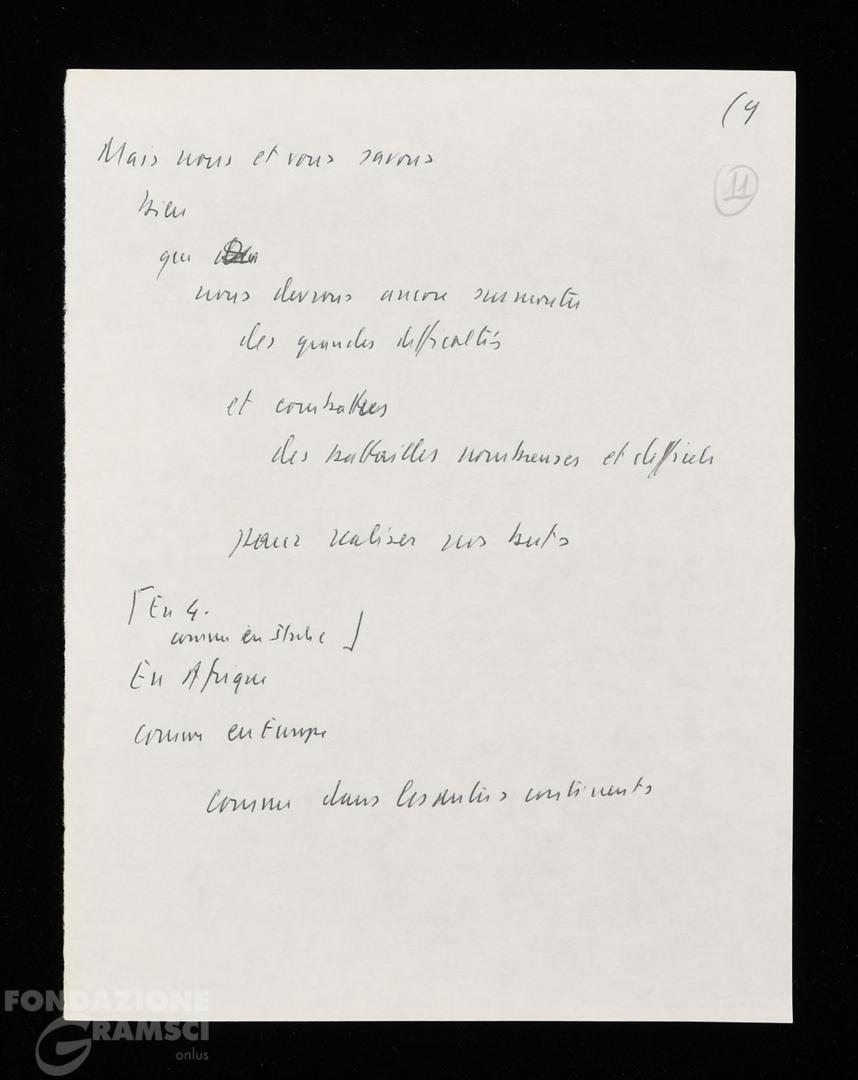 (9
11
Mais nous et vous savons
bien
que
nous devrons ancore surmonter
des grandes difficultés
et combattres
des battailles nombreuses et difficiles
pour realiser nos buts
[En G.
comme en Italie]
En Afrique
comme en Europe
comme dans les autres continents
FONDAZIONE
GRAMSCI
onlus